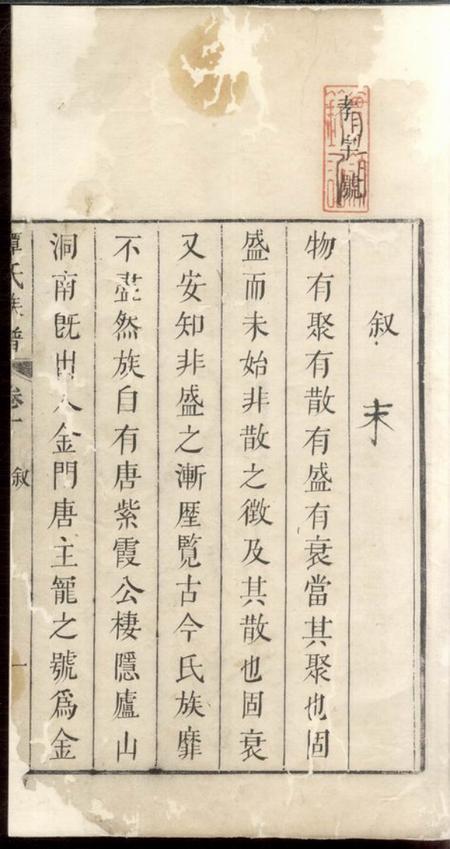 叙
末
物有聚有散有盛有衰當其聚也固
盛而未始非散之徴及其散也固衰
又安知非盛之漸歷覽古今氏族靡
不然族自有唐紫霞公棲隱廬山
洞南旣出入金門唐主寵之號爲金
譚氏族譜 卷一 叙 一
號